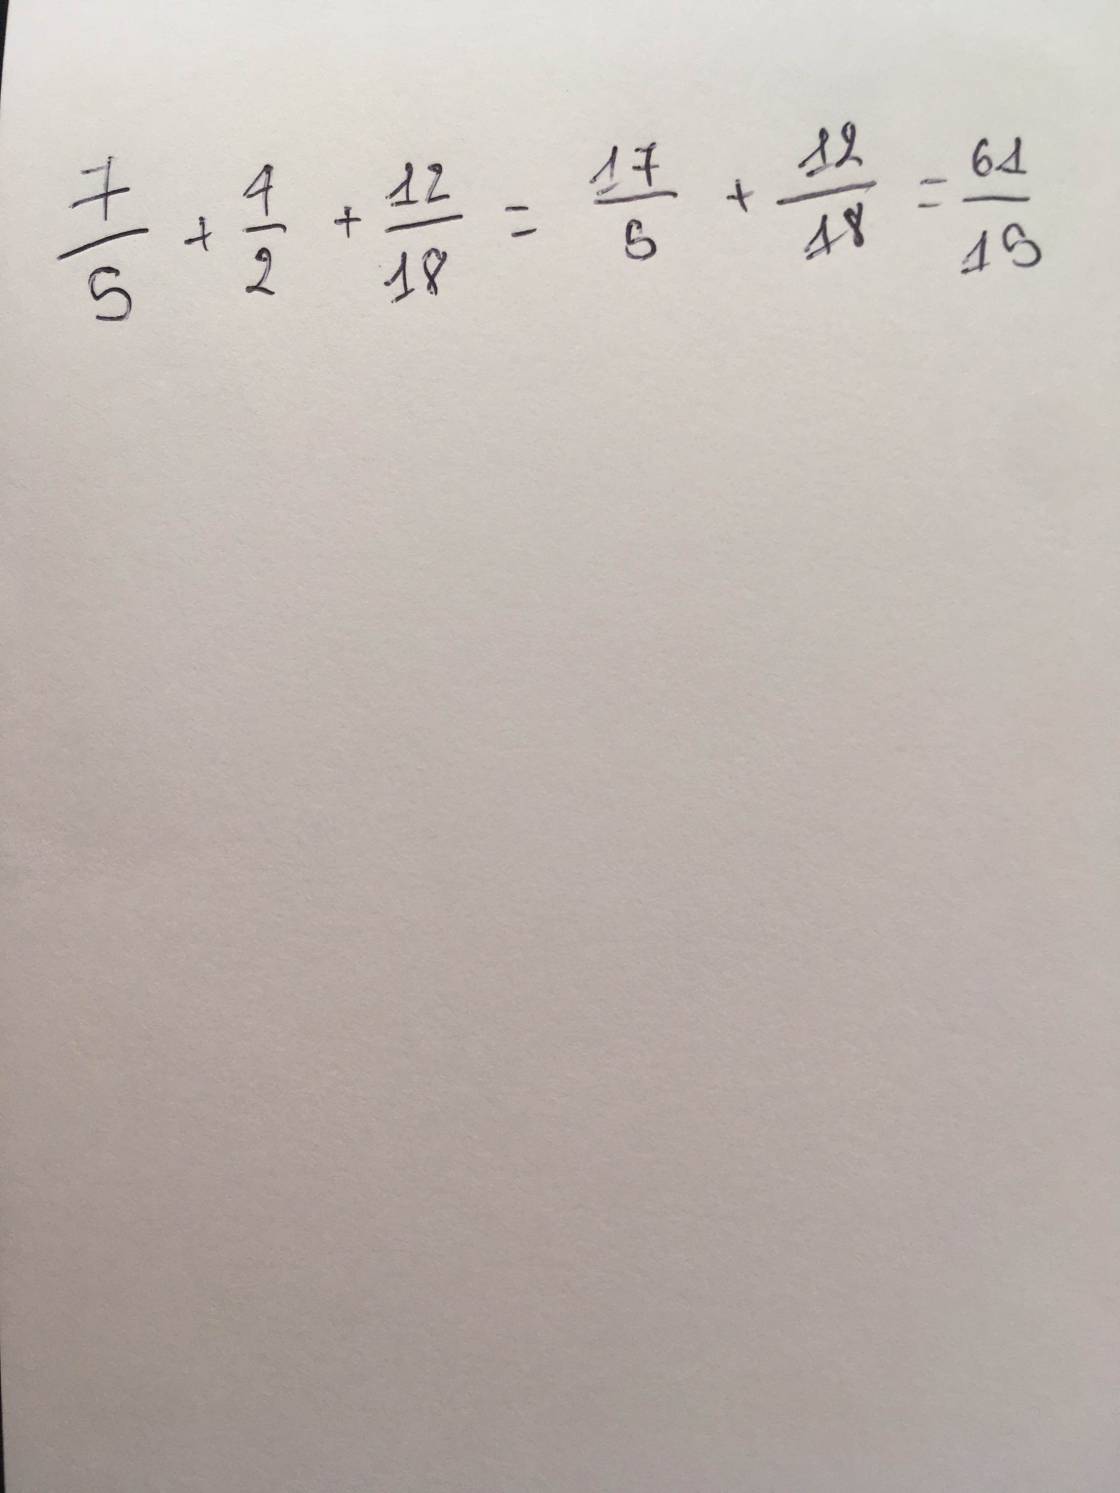 7/5 + 4/2 + 12/18 = 17/5 + 12/18 = 61/15